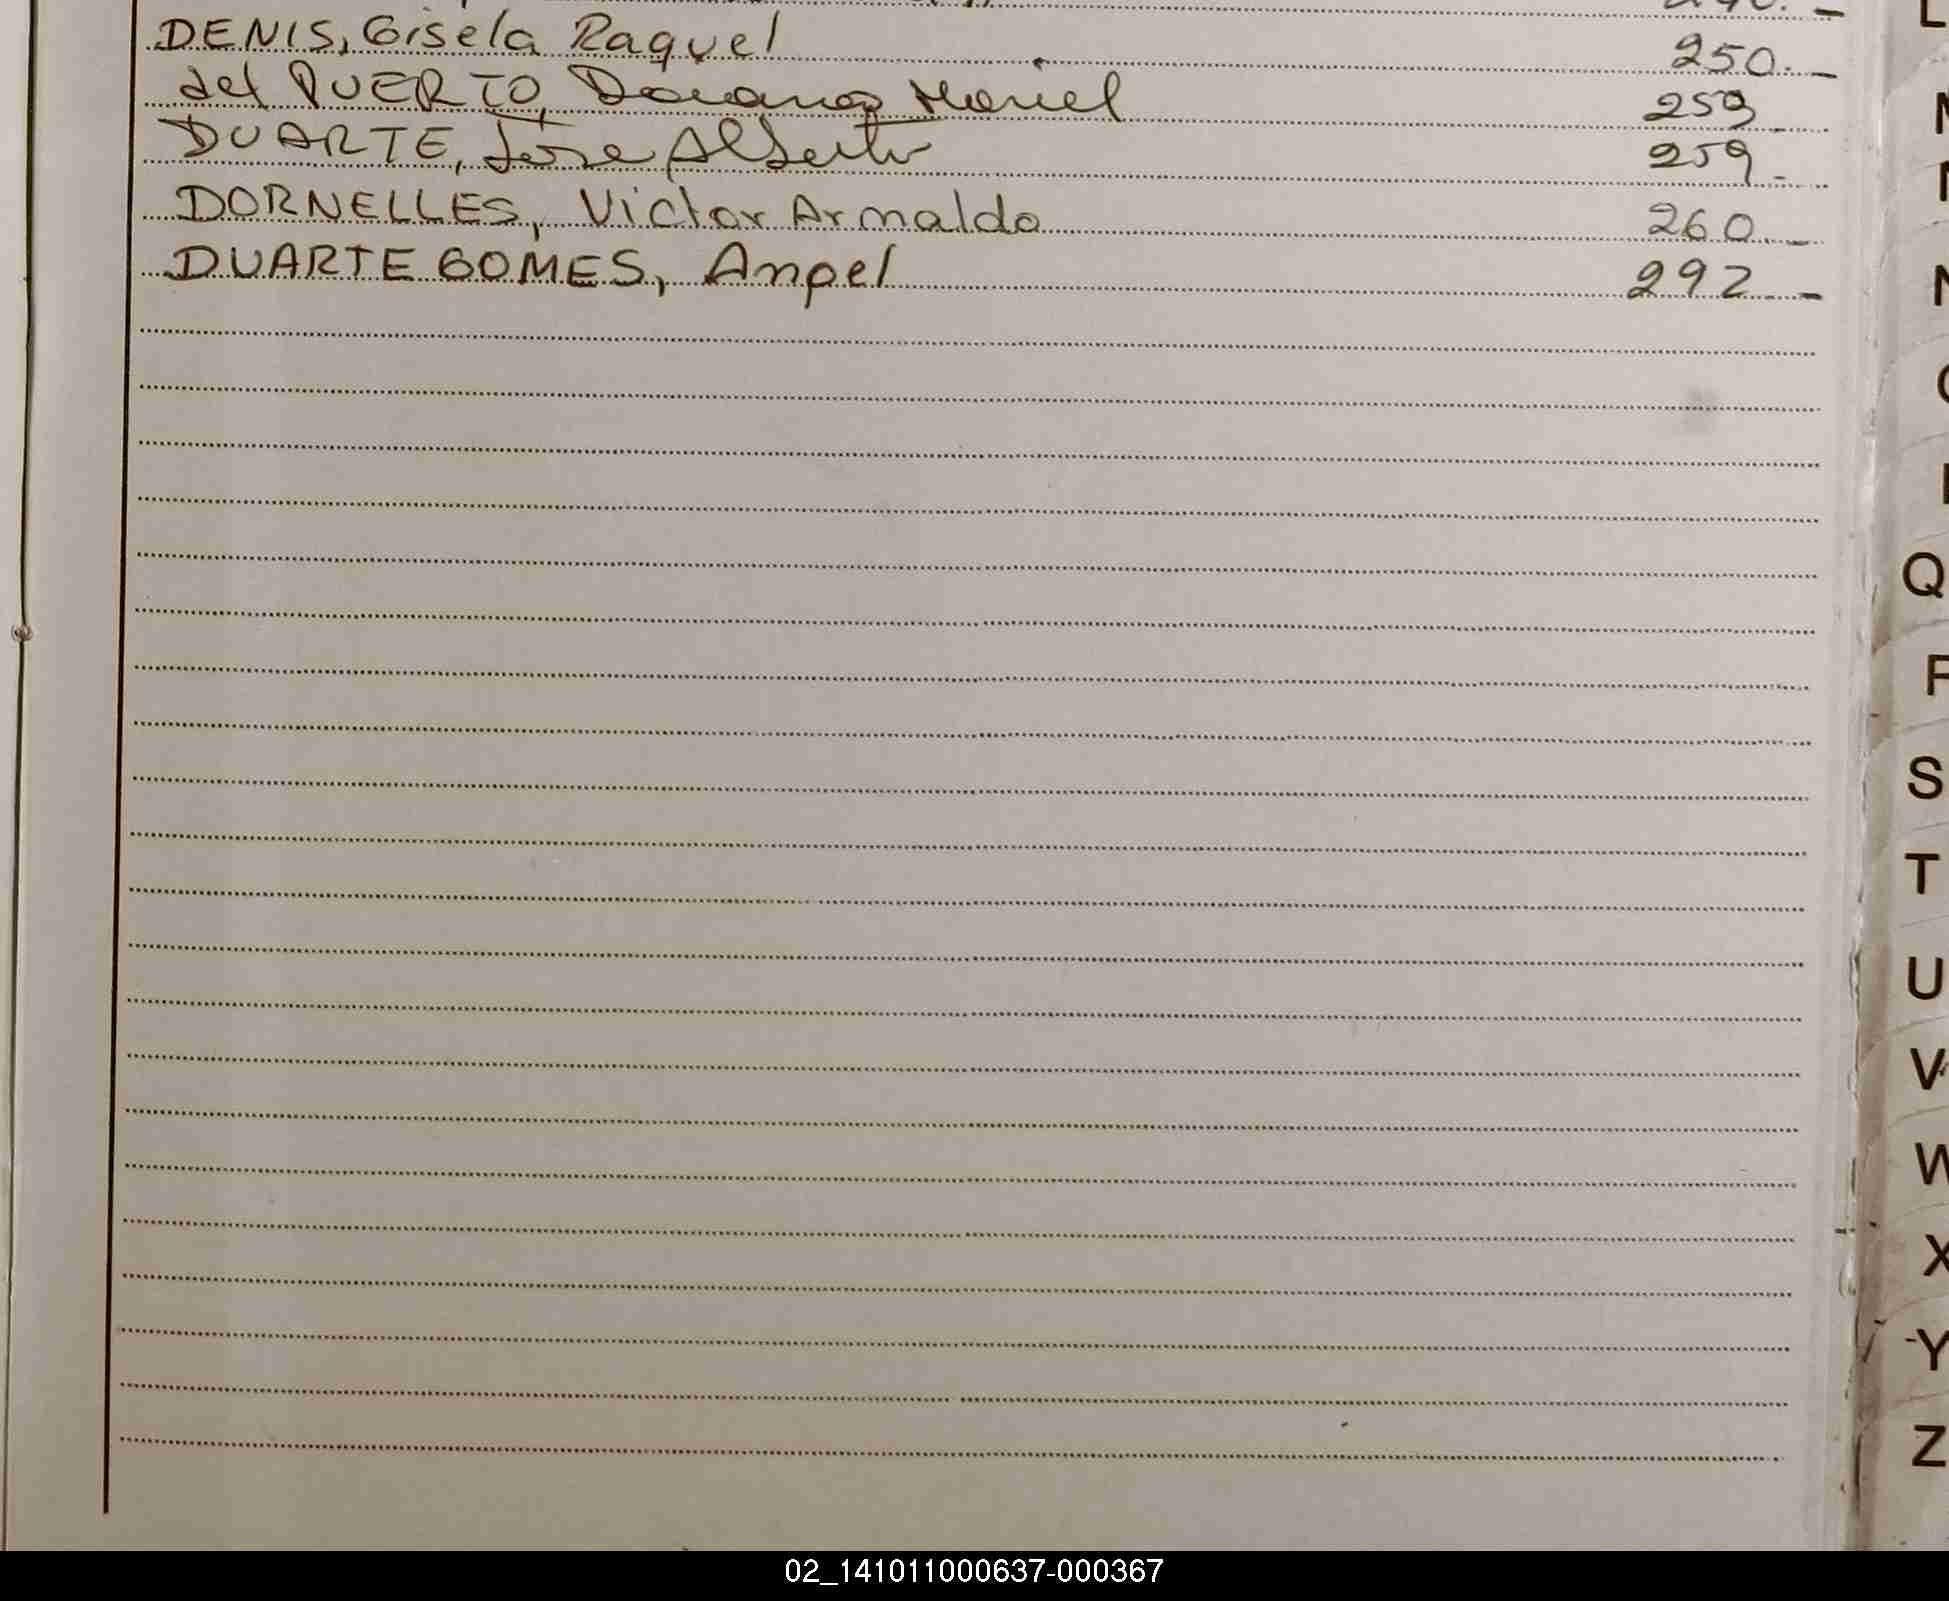 DENIS, Gisela Raquel 250.-
del PUERTO, Mariel 259.
DUARTE, Jose Alberto 259.
DORNELLES, Victor Armaldo 260.-
DUARTE GOMES, Angel 292.-
Q
S
T
U
V
W
X
Y
Z
02_141011000637-000367